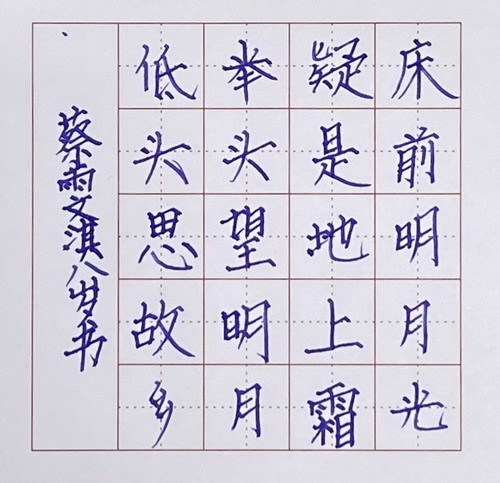 床前明月光
疑是地上霜
举头望明月
低头思故乡
蔡雨文淇八岁书